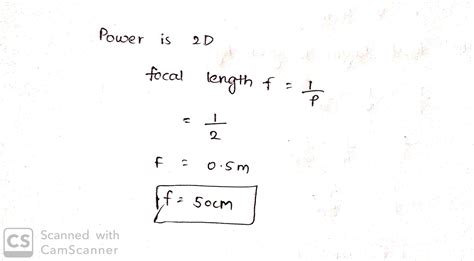 Power is 2D
focal length f = 1/P
= 1/2
f = 0.5m
f = 50cm
CS Scanned with
CamScanner